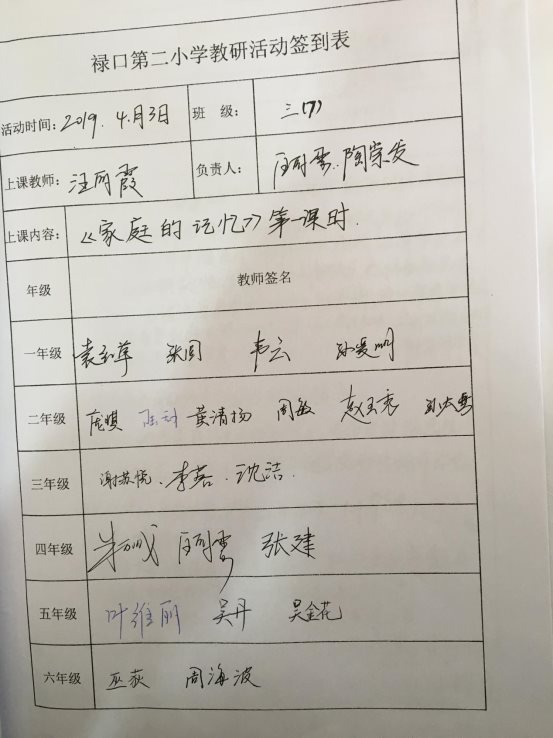 禄口第二小学教研活动签到表
活动时间：2019.4月3日 班 级： 三(7)
上课教师：汪丽霞 负责人： 陶宗发
上课内容：《家庭的记忆》第一课时.
年级 教师签名
一年级 韦云 孙爱明
二年级 庞琪 陆剑 黄清扬 周敏
三年级 谢苏悦、李蓉、沈洁.
四年级 张建
五年级 叶维丽 吴丹 吴金花
六年级 巫荻 周海波